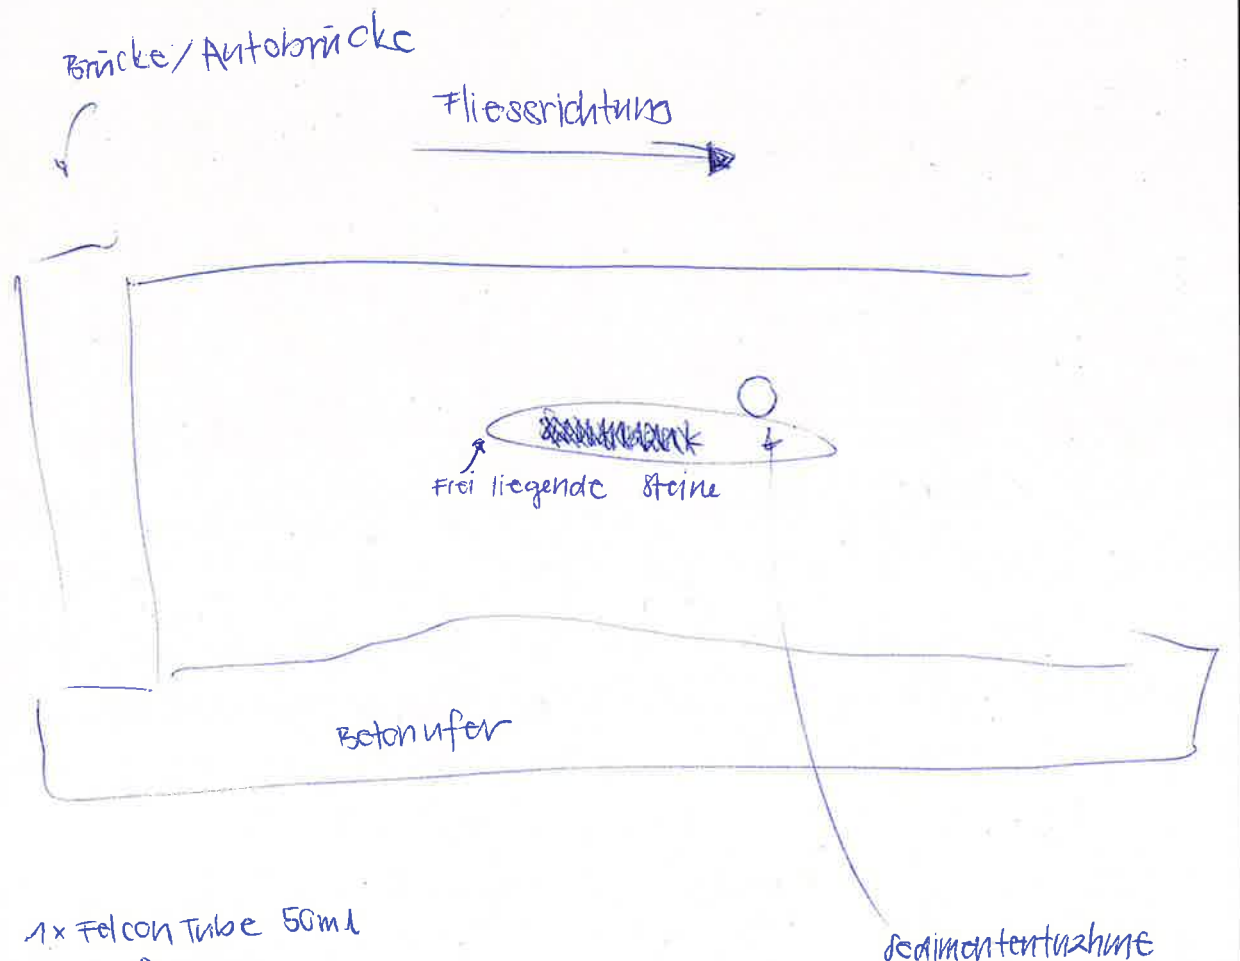 Brücke/Autobrücke
Fliessrichtung
Frei liegende Steine
Betonufer
1x Felcon Tube 50ml
Sedimententnahme